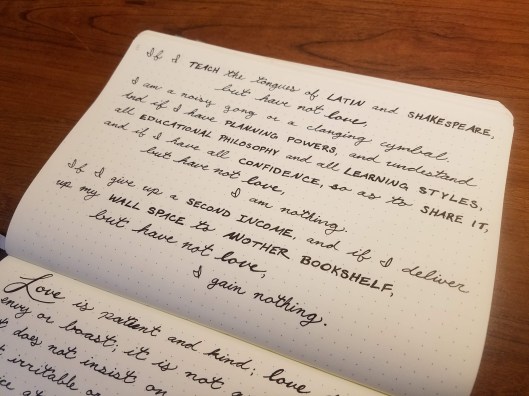 If I TEACH the tongues of LATIN and SHAKESPEARE,
but have not love,
I am a noisy gong or a clanging cymbal.
And if I have PLANNING POWERS, and understand
all EDUCATIONAL PHILOSOPHY and all LEARNING STYLES,
and if I have all CONFIDENCE, so as to SHARE IT,
but have not love,
I am nothing.
If I give up a SECOND INCOME, and if I deliver
up my WALL SPACE to ANOTHER BOOKSHELF,
but have not love,
I gain nothing.
Love is patient and kind; love
envy or boast; it is not
does not insist on
irritable or